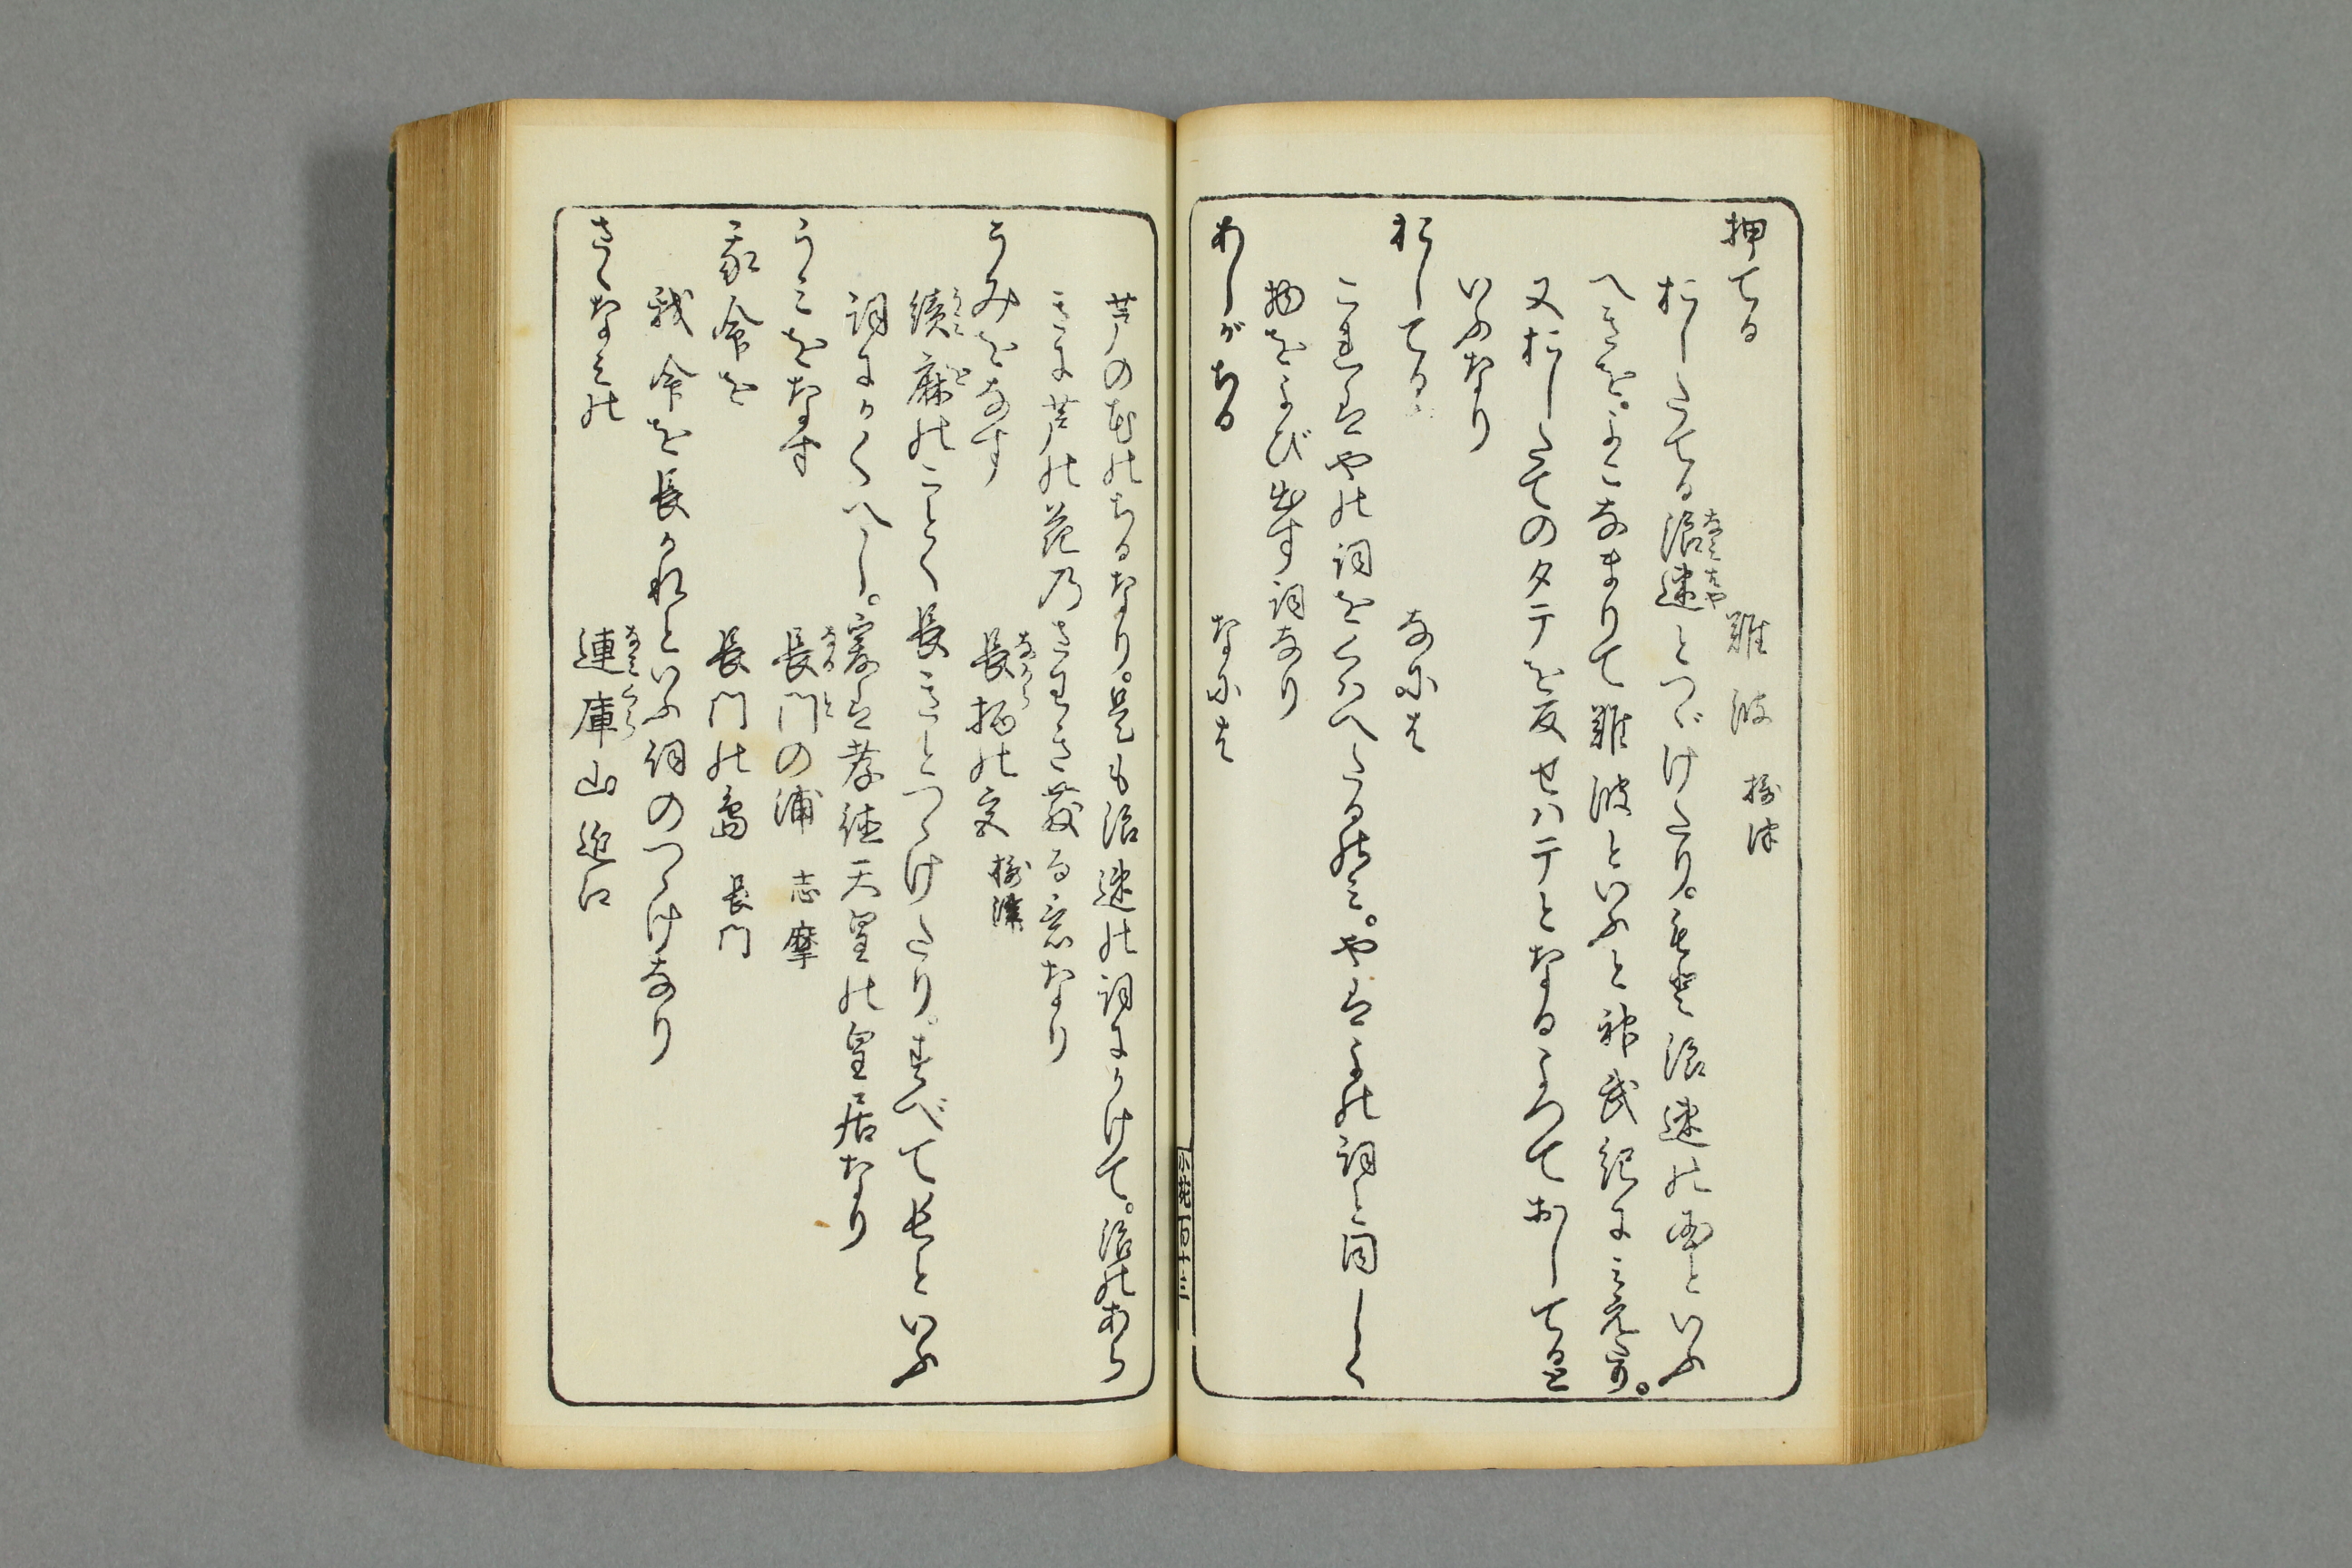 押てる　難波　摂津
おしたてる浪速とつゞけたり。もと浪速の国といふ
へきを。よこなまりて難波といふと神武紀に見えたり。
又おしたてのタテを反せハテとなるよつておしてると
いふなり
おしてるや　なには
これはやの詞をくはへたるのミ。やはよの詞と同しく
物をよび出す詞なり
あしがちる　なには
芦の花のちるなり。是も浪速の詞にかけて。浪のあら
きに芦の花乃さわき散る意なり
うみをなす　長柄の宮　摂津
績麻のことく長きとつゝけたり。すべて長といふ
詞にかくへし。爰は孝徳天皇の皇居なり
うミをなす　長門の浦　志摩
我命を　長門の島　長門
我命を長かれといふ詞のつゝけなり
さゝなミの　連庫山　近江